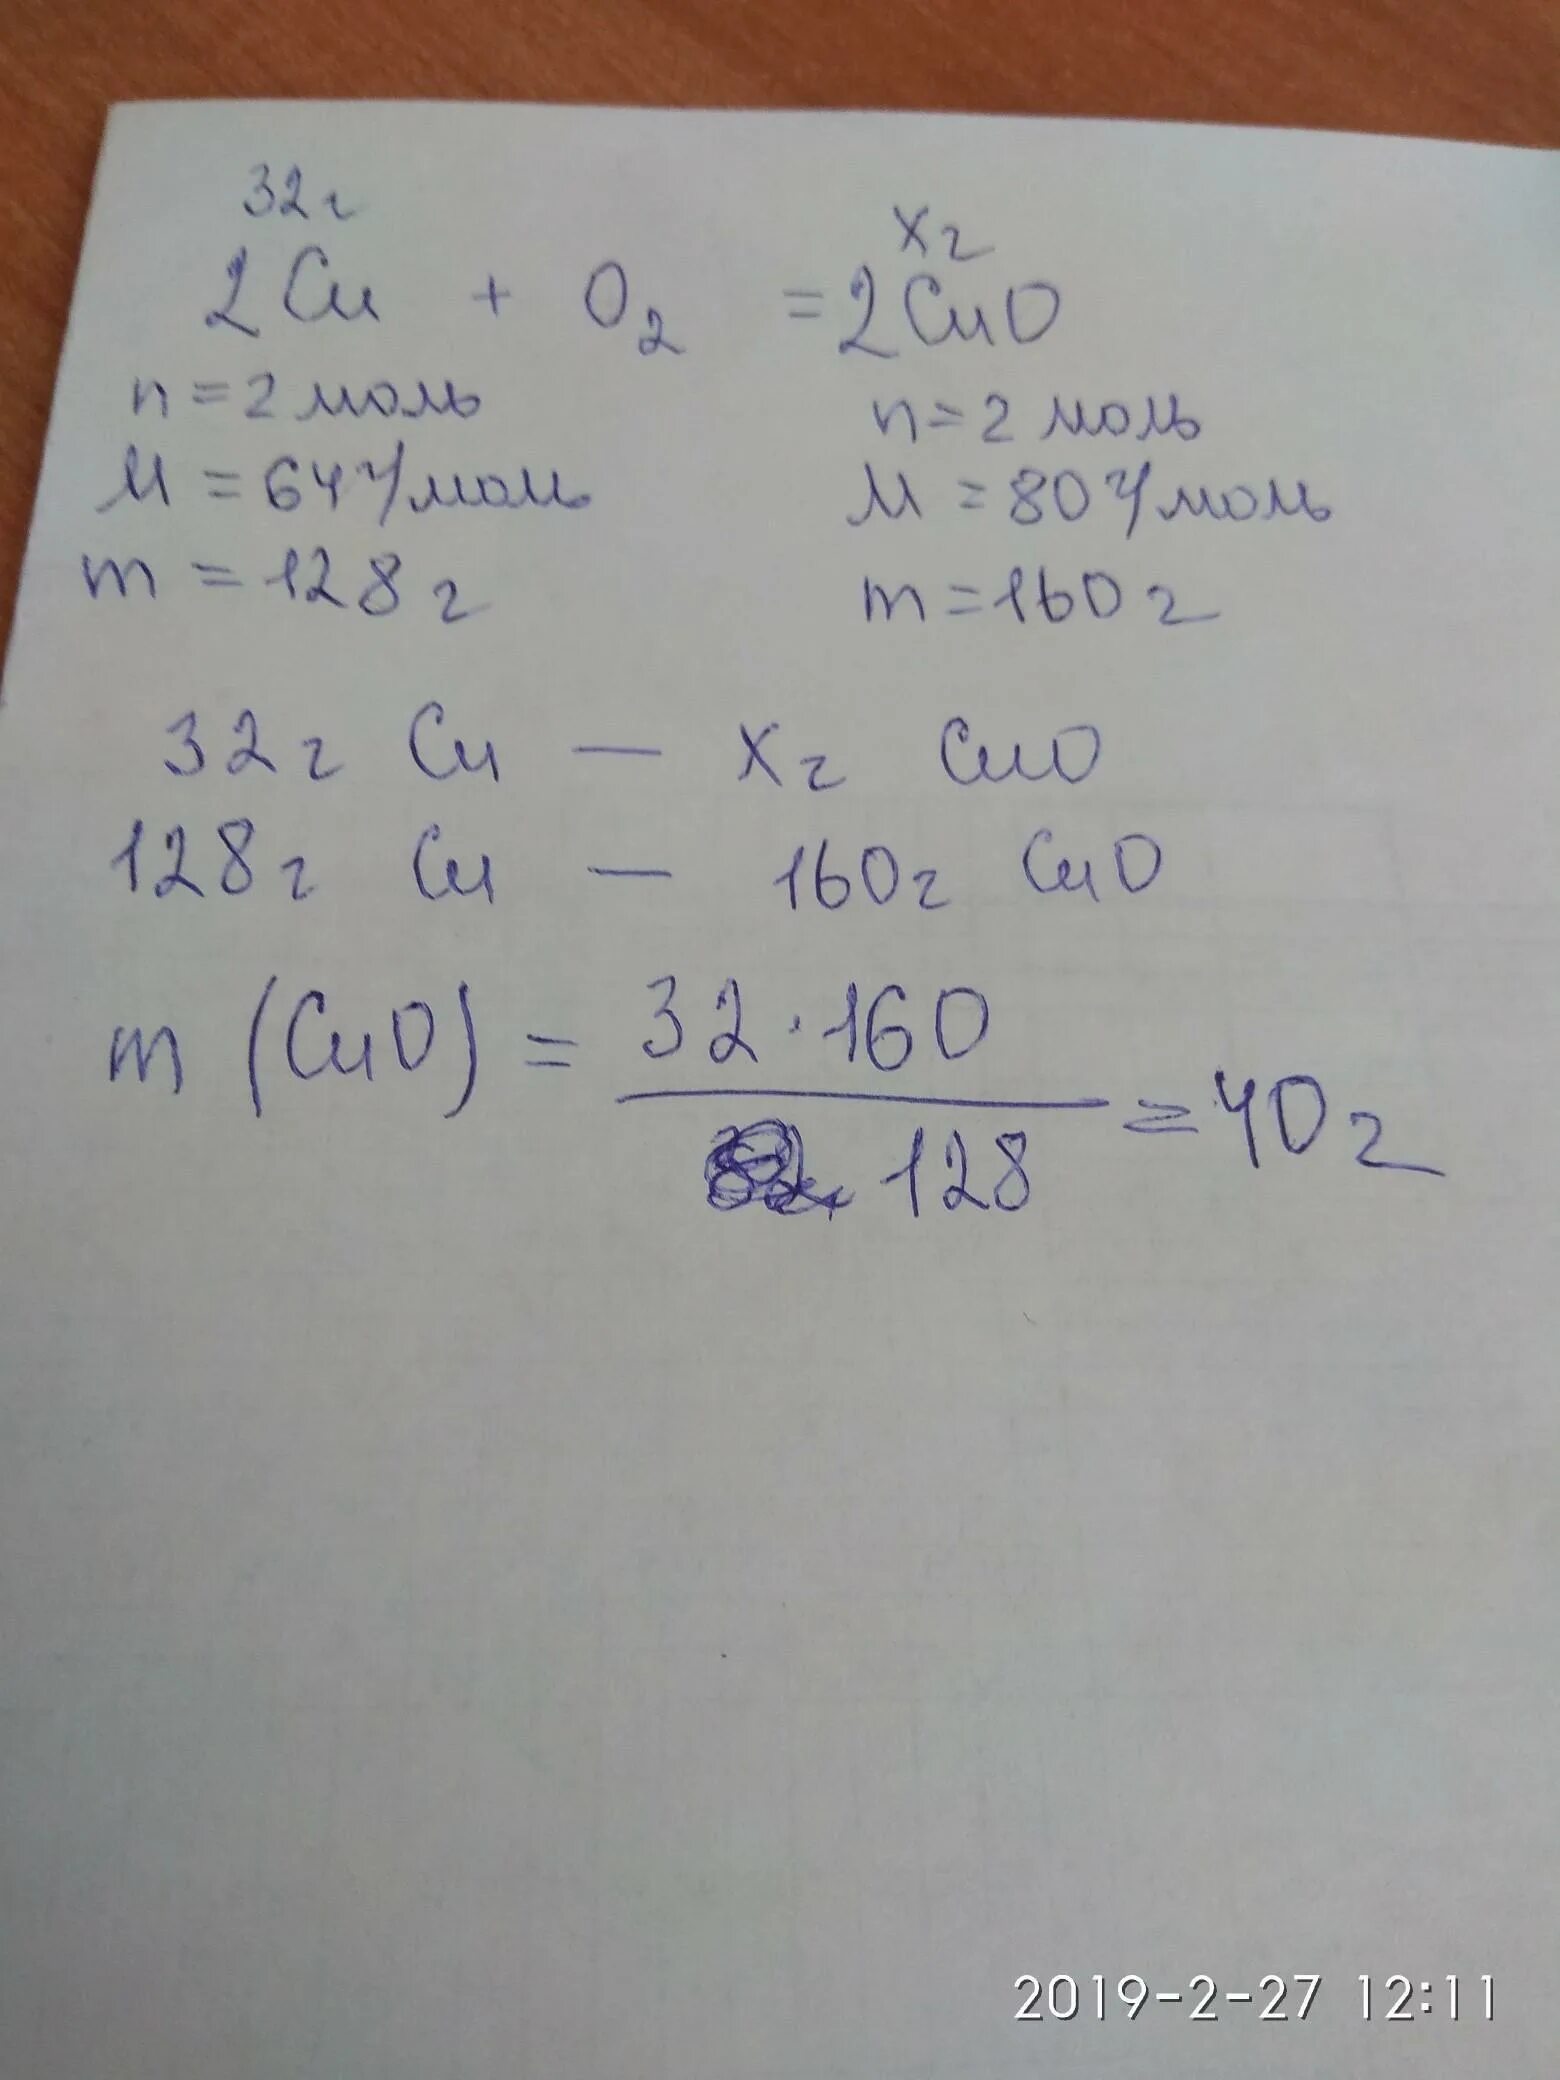 32г
хг
2Cu + O2 = 2CuO
n = 2 моль n = 2 моль
M = 64 г/моль M = 80 г/моль
m = 128 г m = 160 г
32 г Cu — х г CuO
128 г Cu — 160 г CuO
m (CuO) = 32 · 160 / 128 = 40 г
2019-2-27 12:11